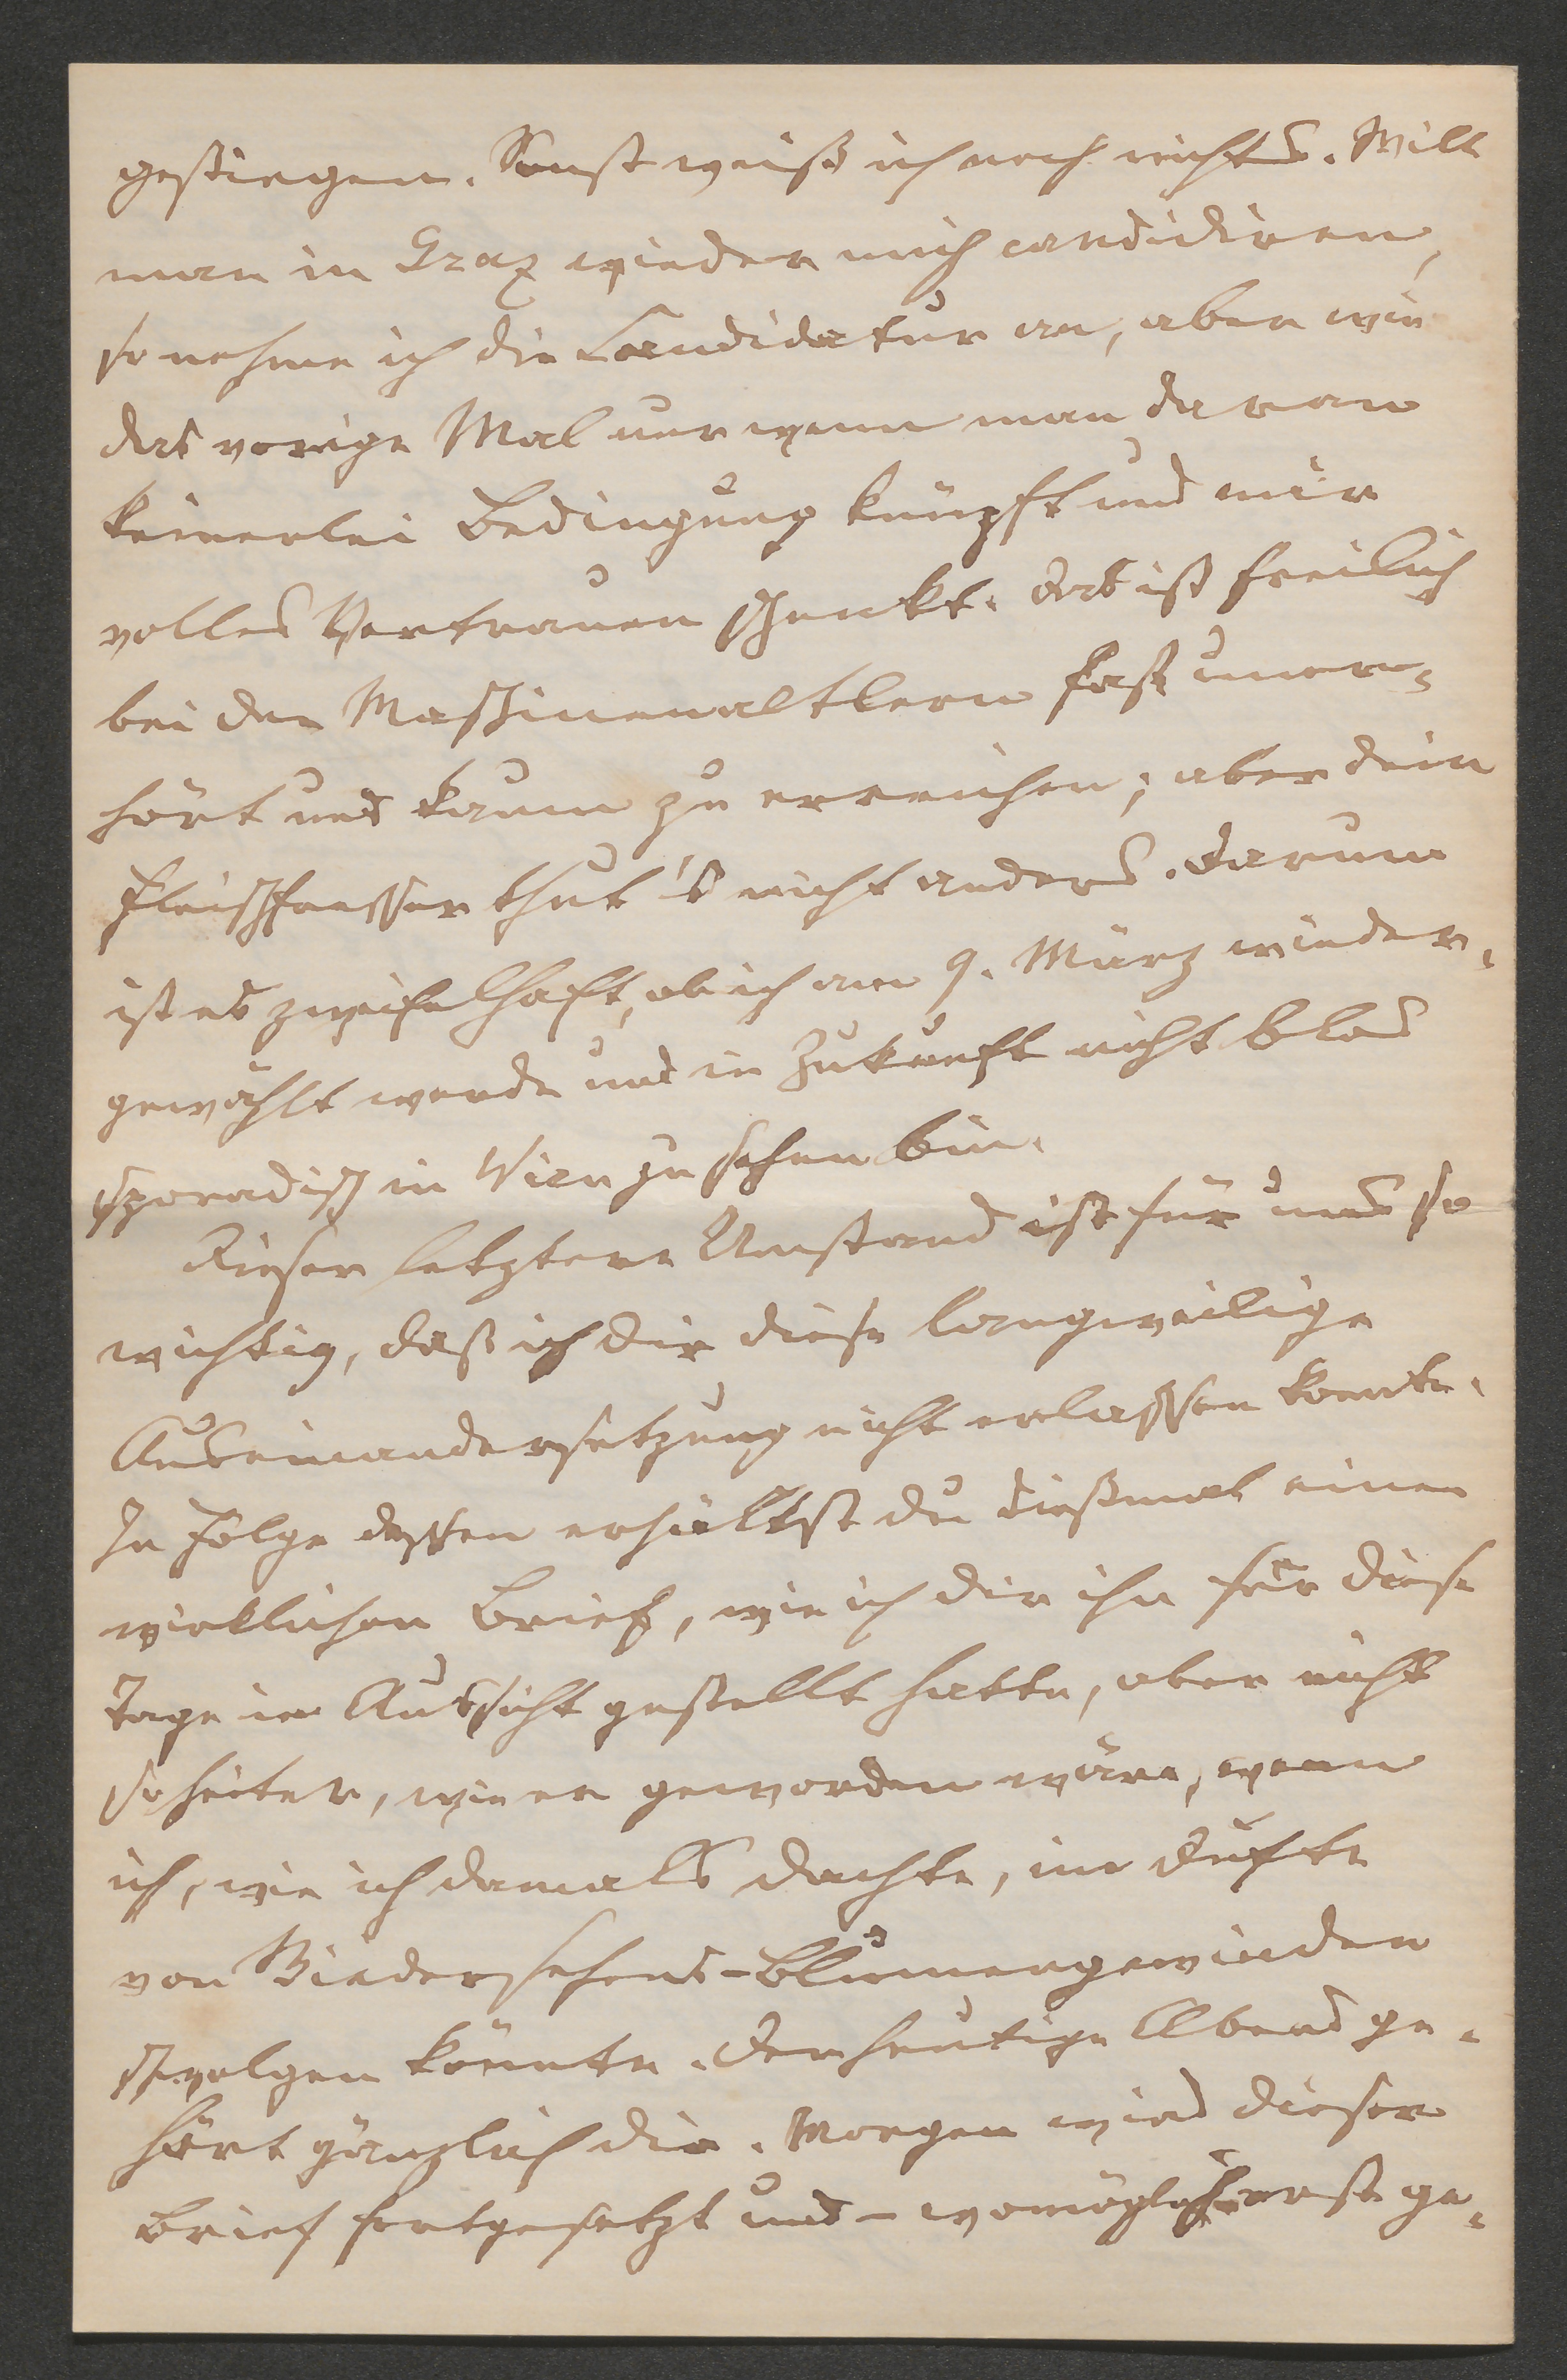 gestiegen. Sonst weiß ich noch nichts. Will
man in Graz wieder mich candidiren,
so nehme ich die Candidatur an, aber wie
das vorige Mal nur wenn man daran
keinerlei Bedingung knüpft und mir
volles Vertrauen schenkt. Das ist freilich
bei den fast uner-
hört und kaum zu erreichen; aber dein
Fleischfresser thut's nicht anders. Darum
ist es zweifelhaft, ob ich am 9. März wieder-
gewählt werde und in Zukunft nicht blos
sporadisch in Wien zu sehen bin.
Dieser letztere Umstand ist für uns so
wichtig, daß ich dir diese langweilige
Auseinandersetzung nicht erlassen konnte.
In Folge dessen erhältst du dießmal einen
wirklichen Brief, wie ich dir ihn für diese
Tage in Aussicht gestellt hatte, aber nicht
so heiter, wie er geworden wäre, wenn
ich, wie ich damals dachte, im Dufte
von Wiedersehens-Blumengewinden
schwelgen könnte. Der heutige Abend ge-
hört gänzlich dir. Morgen wird dieser
Brief fortgesetzt und – womöglich erst ge-